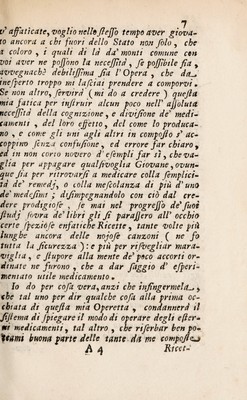 7
v' affaticate, voglio nello stesso tempo aver giova-
to ancora a chi fuori dello Stato non solo, che
a coloro, i quali di là da' monti comune con
voi aver ne possono la necessità, se possibile sia,
avvegnachè debilissima sia l'Opera, che da
inesperto troppo mi lasciai prendere a comporvi.
Se non altro, servirà (mi do a credere) questa
mia fatica per instruir alcun poco nell' assoluta
necessità della cognizione, e divisione de' medi-
camenti, del loro effetto, del come lo produca-
no, e come gli uni agli altri in composto s' ac-
coppino senza confusione, ed errore far chiaro,
ed in non corto novero d' esempli far sì, che va-
glia per appagare qualsivoglia Giovane, ovun-
que sia per ritrovarsi a medicare colla semplici-
tà de' remedj, o colla mescolanza di più d' uno
de' medesimi; disimpegnandolo con ciò dal cre-
dere prodigiose, se mai nel progresso de' suoi
studj sovra de' libri gli si parassero all' occhio
certe speziose enfatiche Ricette, tante volte più
lunghe ancora delle nojose canzoni (ne fo
tutta la sicurezza): e più per risvegliar mara-
viglia, e stupore alla mente de' poco accorti or-
dinate ne furono, che a dar saggio d' esperi-
mentato utile medicamento.
Io do per cosa vera, anzi che infingermela,
che tal uno per dir qualche cosa alla prima oc-
chiata di questa mia Operetta, condannerà il
sistema di spiegare il modo di operare degli ester-
ni medicamenti, tal altro, che riserbar ben po-
teami buona parte delle tante da me composte
A 4 Ricet-